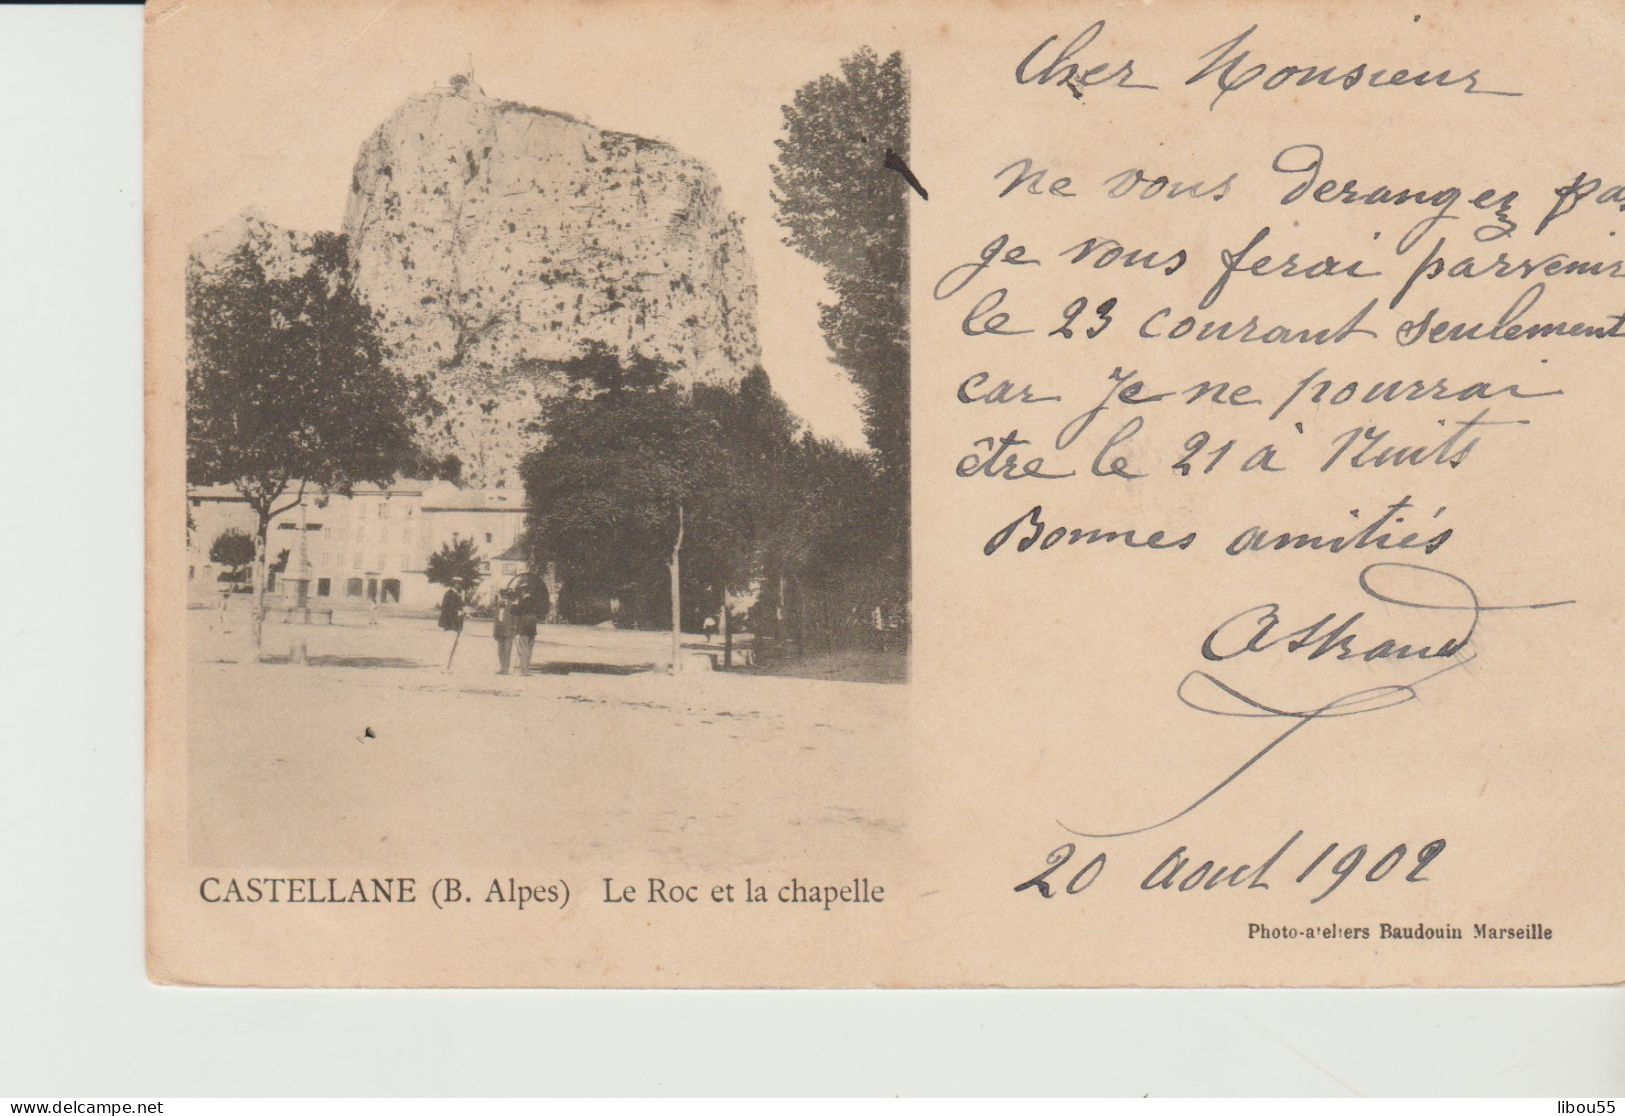 Cher Monsieur
ne vous derangez pas
je vous ferai parvenir
le 23 courant seulement
car je ne pourrai
être le 21 à Nuits
Bonnes amitiés
20 Aout 1902
CASTELLANE (B. Alpes) Le Roc et la chapelle
Photo-ateliers Baudouin Marseille
delcampe.net
libou55